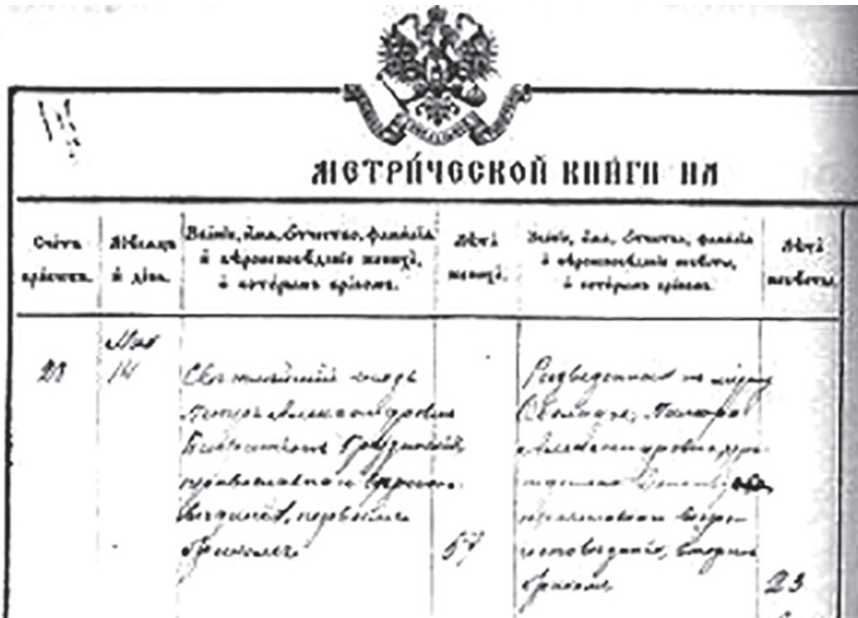 МЕТРИ́ЧЕСКОЙ КНИ́ГИ НА
Счётъ
браковъ.
Мѣсяцъ
и день.
Званіе, имя, отчество, фамилія
и вѣроисповѣданіе жениха,
и которымъ бракомъ.
Лѣта
жениха.
Званіе, имя, отчество, фамилія
и вѣроисповѣданіе невѣсты,
и которымъ бракомъ.
Лѣта
невѣсты.
Мая
28
14
Свѣтлѣйшій князь
Петръ Александровичъ
Грузинскій,
православнаго вѣроис-
повѣданія, первымъ
бракомъ
57
Разведенная
Тамара
Александровна
православнаго вѣро-
исповѣданія, вторымъ
бракомъ
23